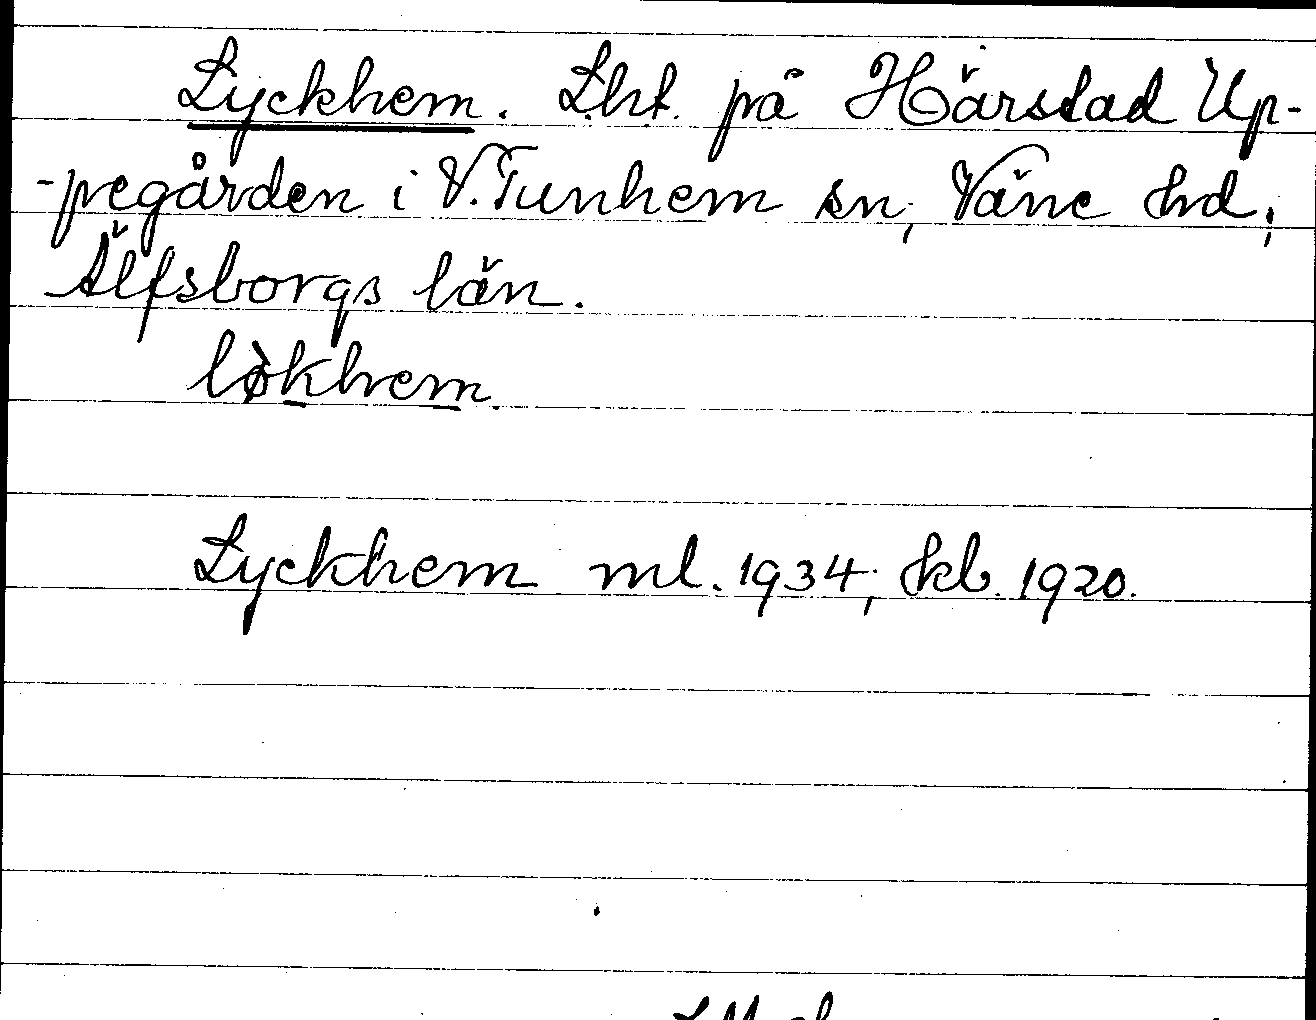 Lyckhem. Lht. på Härstad Up-
-pegården i V. Tunhem sn, Väne hd,
Älfsborgs län.
lø̀khem
Lyckhem ml. 1934, kb. 1920.